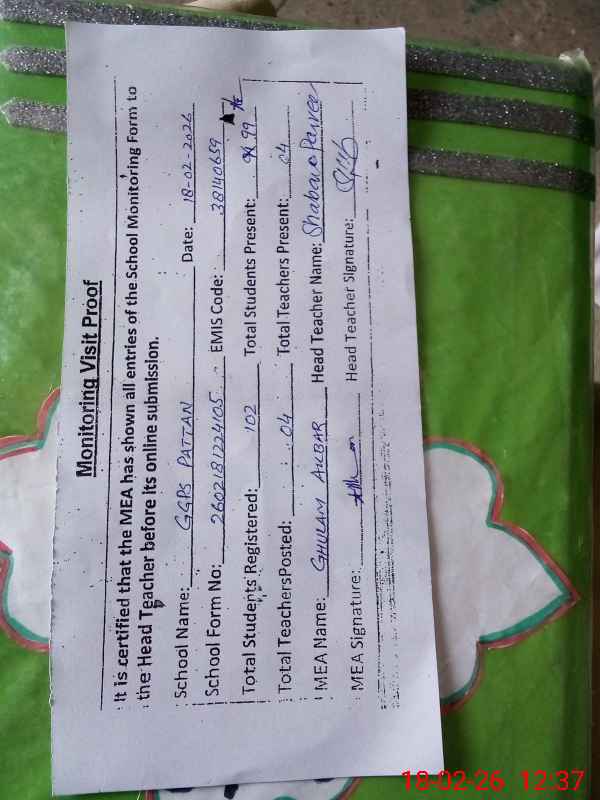 Monitoring Visit Proof
It is certified that the MEA has shown all entries of the School Monitoring Form to
the Head Teacher before its online submission.
School Name: GGPS PATTAN Date: 18-02-2026
School Form No: 2602181224105 EMIS Code: 38140659
Total Students Registered: 102 Total Students Present: 99
Total TeachersPosted: 04 Total Teachers Present: 04
MEA Name: GHULAM AKBAR Head Teacher Name: Shabana Parveen
MEA Signature: Head Teacher Signature:
18-02-26 12:37